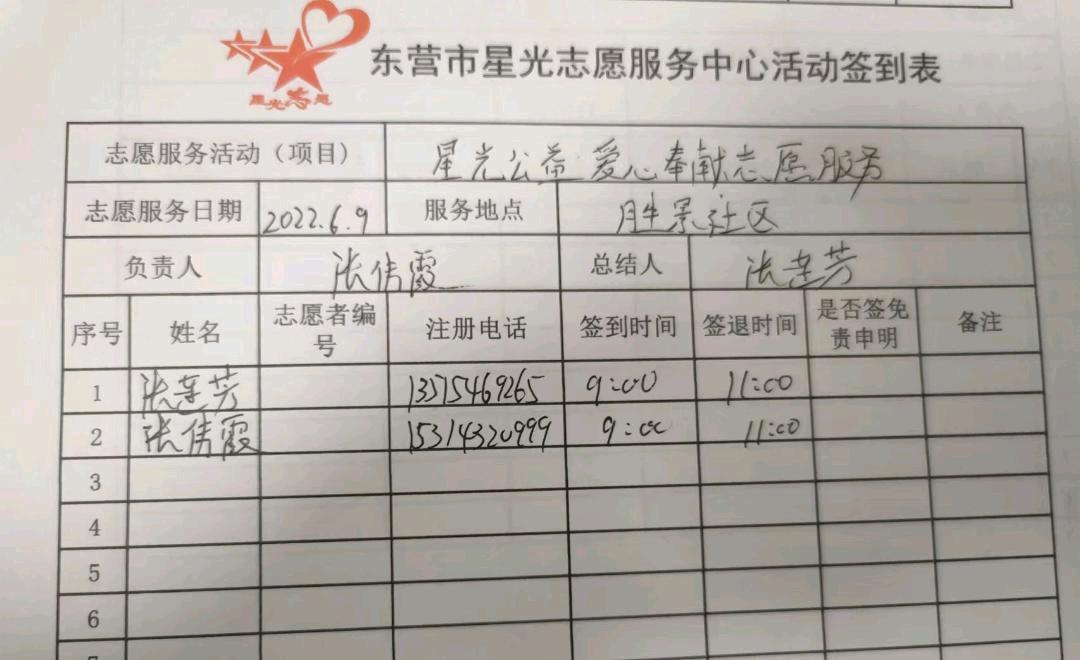 星光志愿
东营市星光志愿服务中心活动签到表
志愿服务活动（项目） 星光公益 爱心奉献志愿服务
志愿服务日期 2022.6.9 服务地点 胜景社区
负责人 张倩霞 总结人 张莲芳
序号 姓名 志愿者编号 注册电话 签到时间 签退时间 是否签免责申明 备注
1 张莲芳 13515469265 9:00 11:00
2 张倩霞 15314320999 9:00 11:00
3
4
5
6